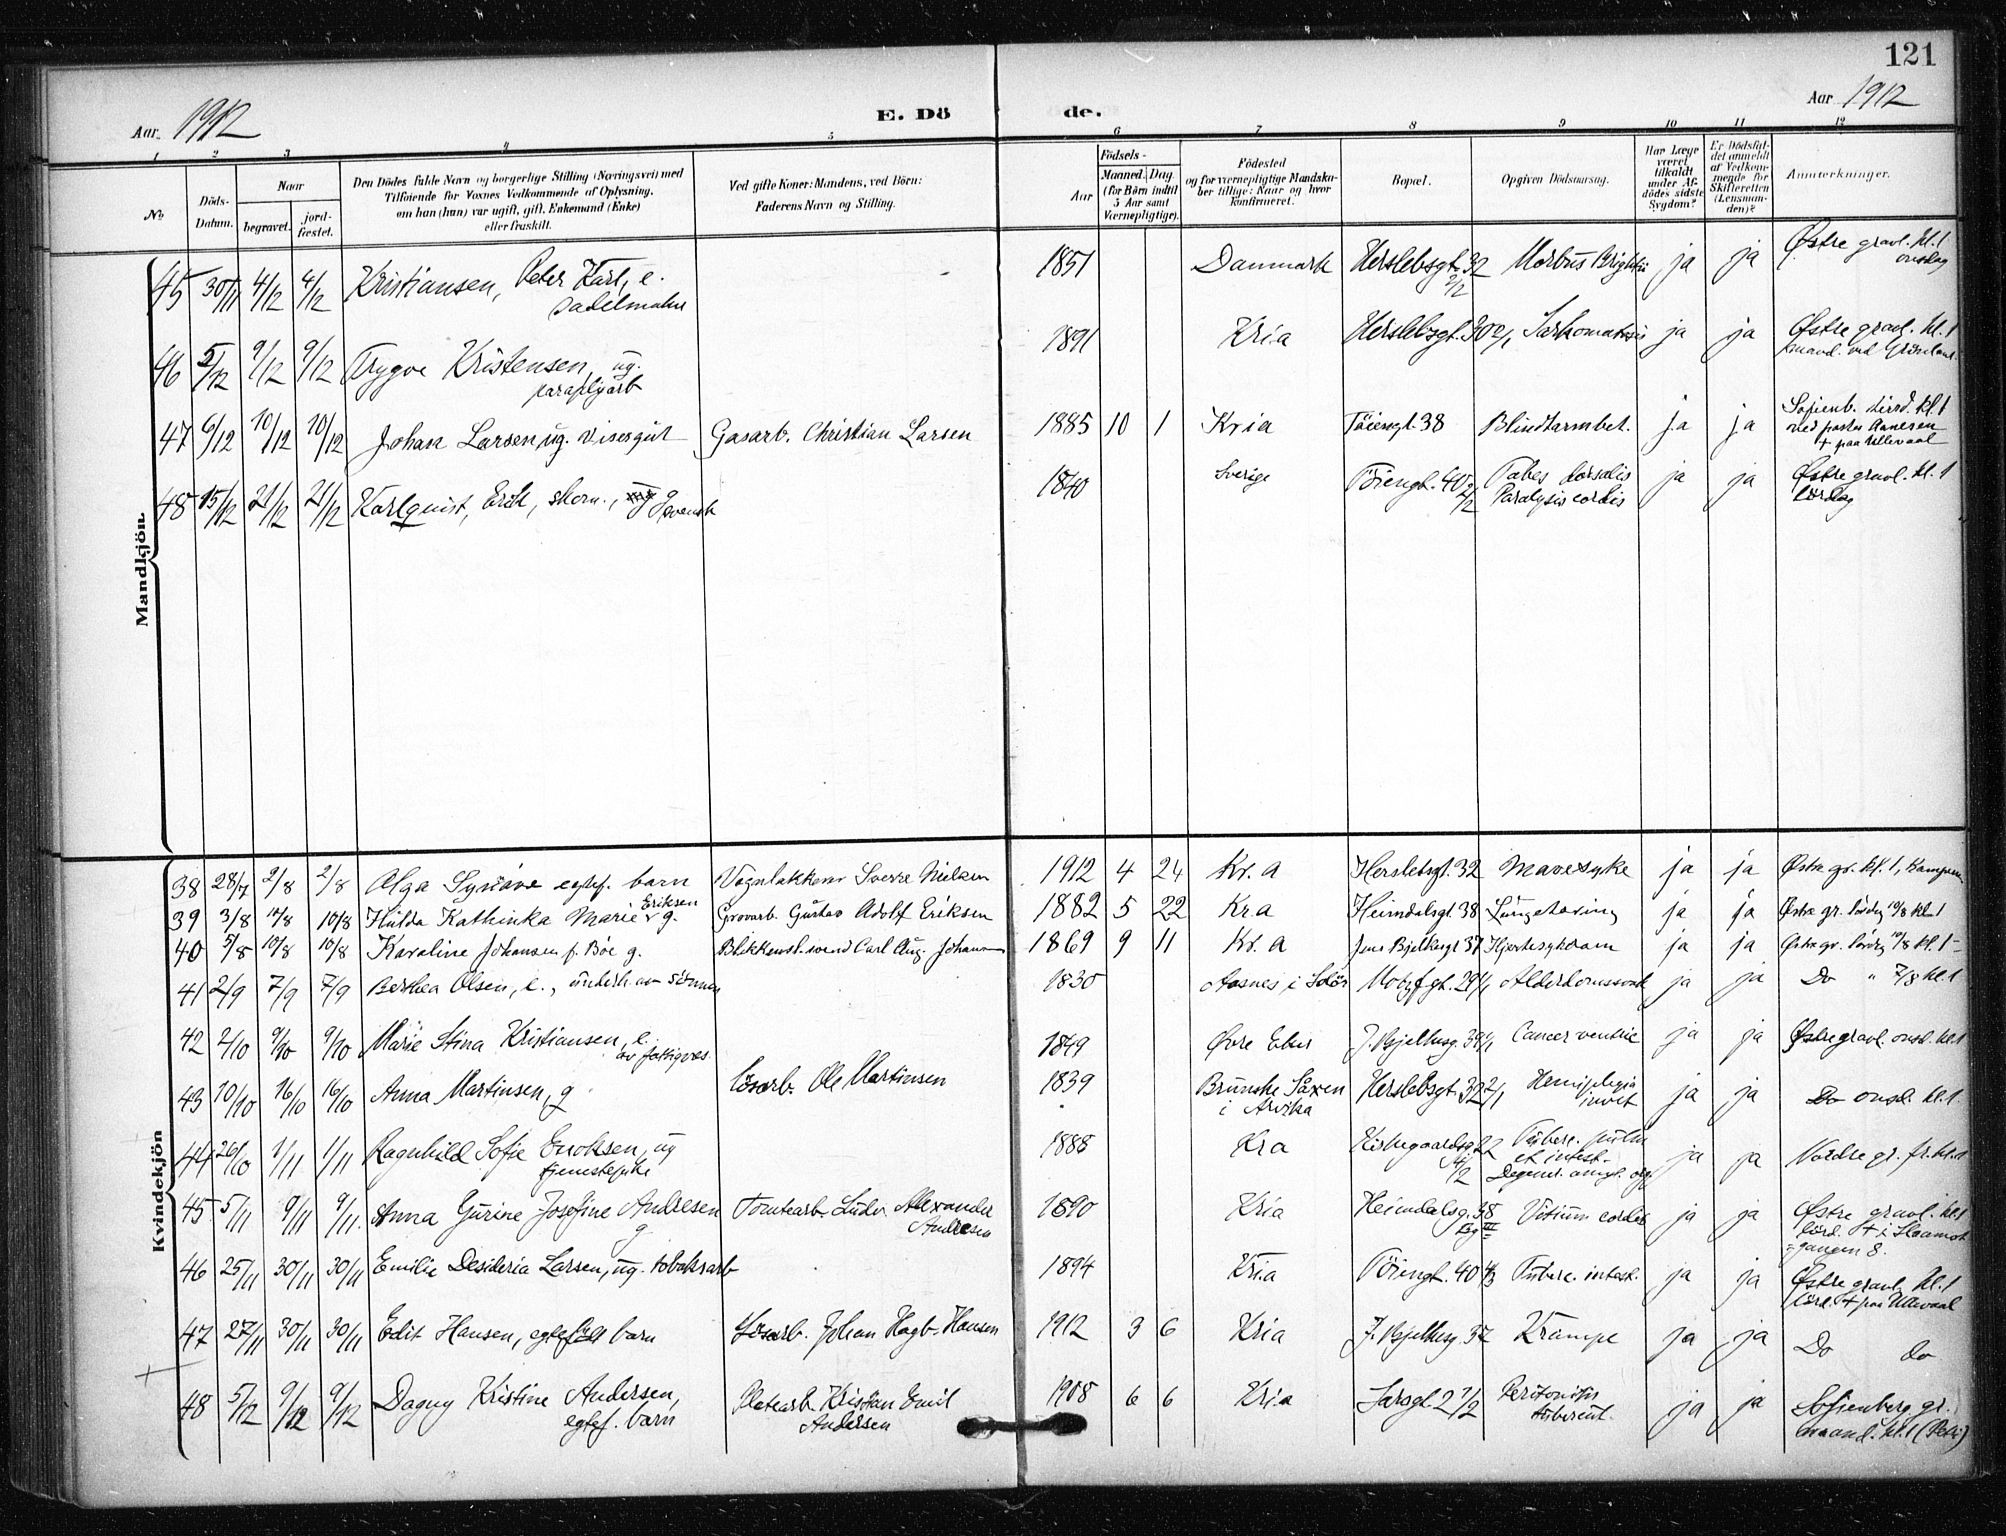 121
Aar 1912
E. Döde.
Aar 1912
1 2 3 4 5 6 7 8 9 10 11 12
No.
Döds-Datum.
Naar begravet. jordfæstet.
Den Dödes fulde Navn og borgerlige Stilling (Næringsvei) med Tilföiende for Voxnes Vedkommende af Oplysning, om han (hun) var ugift, gift, Enkemand (Enke) eller fraskilt.
Ved gifte Koner: Mandens, ved Börn: Faderens Navn og Stilling.
Födsels-
Aar
Maaned. Dag. (for Börn indtil 5 Aar samt Værnepligtige).
Födested og for værnepligtige Mandskaber tillige: Naar og hvor konfirmeret.
Bopæl.
Opgiven Dödsaarsag.
Har Læge været tilkaldt under Afdödes sidste Sygdom?
Er Dödsfaldet anmeldt af Vedkommende for Skifteretten (Lensmanden)?
Anmærkninger.
Mandkjön.
45 30/11 4/12 4/12 Kristiansen, Peter Karl, e. sadelmaker 1851 Danmark Herslebsgt. 32 2/2 Morbus Brightii ja ja Østre gravl. kl. 1 onsdag
46 5/12 9/12 9/12 Trygve Kristensen, ug. paraplyarb 1891 Kria Herslebsgt. 30 Sarkomatosis ja ja Østre gravl. kl. 1 maand. ved
47 6/12 10/12 10/12 Johan Larsen, ug. visergut Gasarb. Christian Larsen 1885 10 1 Kria Töiengt. 38 Blindtarmbet. ja ja Sofienb. tirsd. kl. 1 ved pastor + paa Ullevaal
48 15/12 21/12 21/12 Karlquist, Erik, skom., g svensk 1840 Sverige Töiengt. 40 2/2 Tabes dorsalis Paralysis cordis ja ja Østre gravl. kl. 1 lördag
Kvindekjön
38 28/7 2/8 2/8 Alga Synöve egtef. barn Vognlakkerer Sverre Nielsen 1912 4 24 Kr.a Herslebsgt. 32 Mavesyke ja ja Østre gr. kl. 1, Kampen
39 3/8 10/8 10/8 Hulda Kathinka Marie Eriksen g. Grovarb. Gustav Adolf Eriksen 1882 5 22 Kr.a Heimdalsgt. 38 Lungetæring ja ja Østre gr. lördag 10/8 kl. 1
40 5/8 10/8 10/8 Karoline Johansen f. Böe g. Blikkensl.svend Carl Aug. Johansen 1869 9 11 Kr.a Jens Bjelkesgt 37 Hjertesygdom ja ja Østre gr. lördag 10/8 kl. 1
41 2/9 7/9 7/9 Berthea Olsen, e., underh. av sönnen 1830 Aasnes i Solör Motzf.gt. 29 Alderdomssvak ja ja Do " 7/8 kl. 1
42 2/10 9/10 9/10 Marie Stina Kristiansen, e. av fattigves 1849 Øvre J. Bjelkesg. 39 Cancer ventric ja ja Østre gravl. onsd. kl. 1
43 10/10 16/10 16/10 Anna Martinsen, g Lösarb. Ole Martinsen 1839 Brunskog i Arvika Herslebsgt. 32 2/1 Hemiplegia ja ja Do onsd. kl. 1
44 26/10 1/11 1/11 Ragnhild Sofie Enoksen, ug tjenestepike 1888 Kra Kirkegaardsg. 22 Tuberc. pulm et intest. Degenr. amyl. ja ja Nordre gr. fr. kl. 1
45 5/11 9/11 9/11 Anna Gurine Josefine Andresen g Tomtearb. Ludv. Alexander Andresen 1890 Kria Heimdalsg. 38 Vitium cordis ja ja Østre gravl. kl. 1 lörd. + i gangen 8.
46 25/11 30/11 30/11 Emilie Desideria Larsen, ug. tobaksarb 1894 Kria Töiengt. 40 4/3 Tuberc. intest. ja ja Østre gravl. kl. 1 lörd. + paa Ullevaal
47 27/11 30/11 30/11 Edit Hansen, egtef. barn Lösarb. Johan Hagb. Hansen 1912 3 6 Kria J. Bjelkesg. 37 Krampe ja ja Do do
48 5/12 9/12 9/12 Dagny Kristine Andersen, egtef. barn Platearb. Kristian Emil Andersen 1908 6 6 Kria Sarsgt. 2 1/2 Peritonitis tubercul. ja ja Sofienberg gr. maand. kl. 1